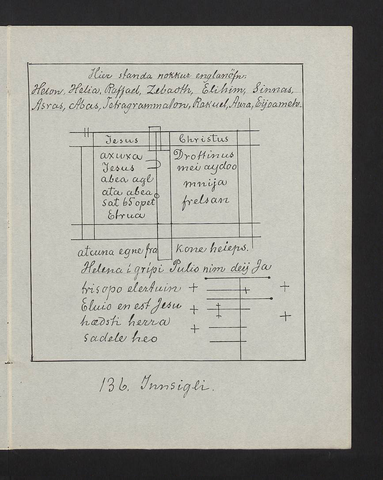 Hér standa nokkur englanöfn:
Heion. Helia, Paffad, Zebaoth, Elihim, Sinnas,
Asras, Abas, Tetragrammaton, Rakuel, Aura, Eijoameb.
Jesus
axuxa
Jesus
abea agl
ata abea
sat 65 opet
Etrua
Christus
Drottinus
mei aydoo
mnija
frelsan
atcuna egne fra kone heieps.
Helena i gripi Pulio nim deij Ja
trisopo elertuin
Eluio en est Jesu
hædsti herra
sadele heo
136. Innsigli.